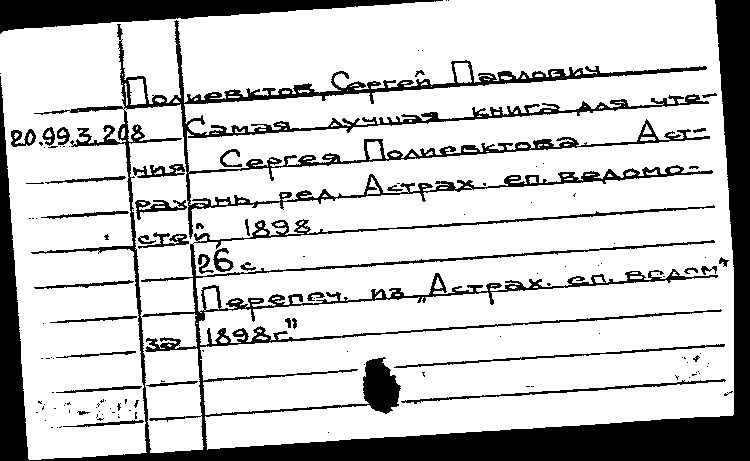 Полиевктов, Сергей Павлович
20.99.3.208 Самая лучшая книга для чте-
ния Сергея Полиевктова. Аст-
рахань, ред. Астрах. еп. ведомо-
стей, 1898.
26 с.
"Перепеч. из "Астрах. еп. ведом"
за 1898г."